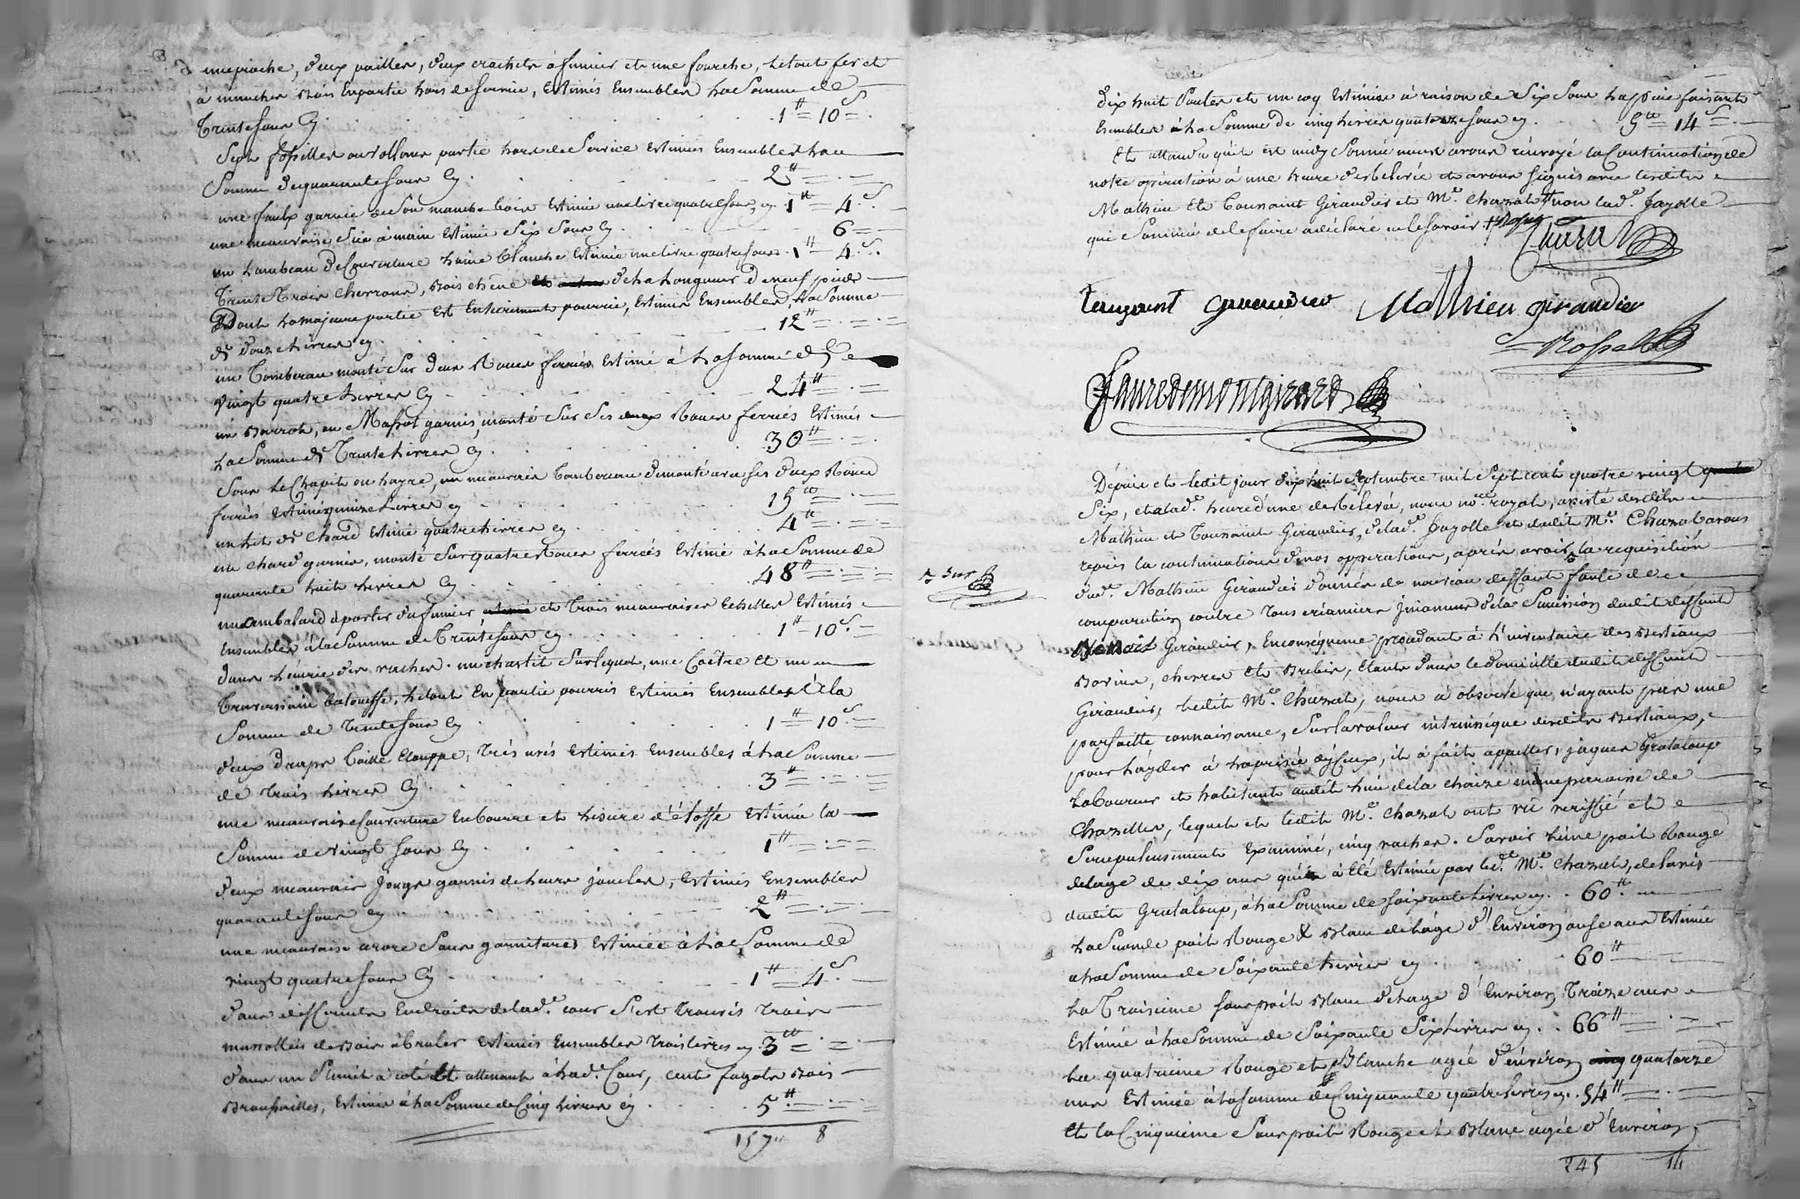 une pioche, deux pailles, deux crochets à fumier et une fourche, le tout fer et
à manches bois en partie hors de service, estimés ensembles la somme de
Trente sous cy . . . 1# = 10 s
Sept faucilles ou vollans partie hors de service estimés ensembles la
Somme de quarante sous cy . . . 2# =
une faulx garnie de son manche bois estimée une livre quatre sous, cy . 1# = 4 s
une mauvaise sie à main estimée six sous cy . . . 6 =
un lambeau de couverture laine blanche estimé une livre quatre sous . 1# = 4 s
Trente Trois chevrons, bois chêne de la longueur de neuf pieds
Dont la majeure partie est entierement pourrie, estimés ensembles la somme
de douze livres cy . . . 12# =
un Tombereau monté sur deux Roues ferrées estimé à la somme de
vingt quatre livres cy . . . 24# =
un Barrot, ou Massot garnis, monté sur ses deux Roues ferrées estimés
la somme de Trente livres cy . . . 30# =
Sous le Chapit ou hayre, un mauvais Tombereau demonté avec ses deux Roues
ferrées estimés quinze livres cy . . . 15# =
un lit de Chard estimé quatre livres cy . . . 4# =
un chard garnie, monté sur quatre Roues ferrées estimé à la somme de
quarante huit livres cy . . . 48# =
un ambalard à porter du fumier et Trois mauvaises Echelles estimés
Ensembles à la somme de Trente sous cy . . . 1# = 10 s
dans l'écurie des vaches . un chartit sur lequel, une Coëtre et un
Traversain balouffe, le tout en partie pourris estimés Ensembles à la
Somme de Trente sous cy . . . 1# = 10 s
deux draps Toille Etouppe, Très usés estimés Ensembles à la somme
de Trois livres cy . . . 3# =
une mauvaise Couverture en bourre et lisière d'étoffe estimée la
Somme de vingt sous cy . . . 1# =
deux mauvais jougs garnis de leurs joucles, estimés Ensembles
quarante sous cy . . . 2# =
une mauvaise arare sans garnitures estimée à la somme de
vingt quatre sous cy . . . 1# = 4 s
dans differents Endroits de lad.e cour s'est trouvés Trois
manottées de bois à Bruler estimés Ensembles Trois livres cy . 3# =
dans un Plumit à coté et attenant à lad.e Cour, cent fagots bois
Broussailles, estimés à la somme de Cinq livres cy . . . 5# =
157# 8
dix huit Poules et un coq estimés à raison de six sous la pièce faisants
Ensembles à la somme de cinq livres quatorze sous cy . . . 5# = 14 s
Et attendu qu'il est midy sonné nous avons renvoyé la Continuation de
notre operation à une heure de relevée et avons signés avec lesdits
Mathieu Et Toussaint Giraudier et M.e Chazal non lad.e Fayolle
qui Sommée de le faire a déclaré ne le savoir
Chazal
Toussaint giraudier Mathieu giraudier
Rossat
Fauredemontgirard
Dépuis et ledit jour dix huit Septembre mil sept cent quatre vingt
Six, et à lad.e heure d'une de relevée, nous no.re royal, assisté desdits
Mathieu et Toussaint Giraudier, de lad.e Fayolle et dudit M.e Chazal avons
repris la continuation de nos opperations, après avoir à la requisition
dud. Mathieu Giraudier donnée de nouveau deffaut faute de
comparution contre tous créanciers inconnus de la Succession dudit deffunt
Benoit Giraudier, En conséquence procedant à l'inventaire des Bestiaux
Bovins, chevres et Brebis, étants dans le domicille dudit deffunt
Giraudier, ledit M.e Chazal, nous à observé que n'ayant pas une
parfaitte connaissance, sur la valeur intrinsèque desdits Bestiaux,
pour layder à la prisée d'Iceux, il à fait appeller, jaques Grataloup
Laboureur et habitant audit lieu de la Chaize même paroisse de
Chazelles, lequel et ledit M.e Chazal ont vû verifié et
Scrupuleusement Examiné, cinq vaches . Savoir L'une poil Rouge
de l'age de dix ans qui à été estimée par led.t M.e Chazal, de l'avis
dudit Grataloup, à la somme de soixante livres cy . . 60# =
La Seconde poil Rouge & Blanc de l'âge d'Environ onze ans estimée
à la Somme de Soixante livres cy . . . 60# =
La Troisieme sous poil Blanc de l'age d'Environ Treize ans
Estimée à la Somme de Soixante Six livres cy . . 66# =
La quatrieme Rouge et Blanche agée d'Environ quatorze
ans Estimée à la somme de Cinquante quatre livres cy . 54# =
Et la Cinquieme Sous poil Rouge et Blanc agée d'Environ
245 14